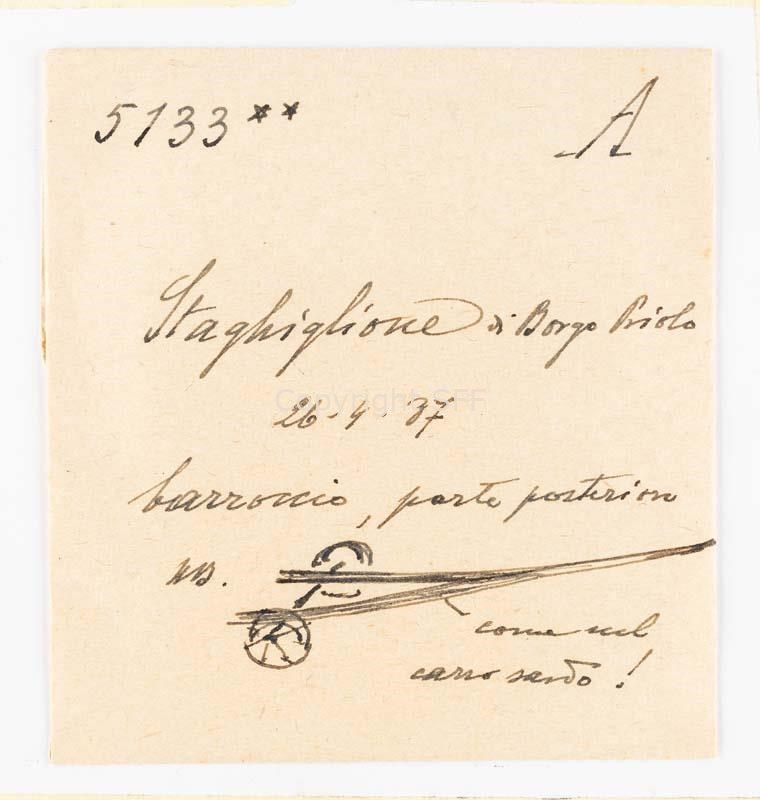 5133** A
Staghiglione di Borgo Priolo
Copyright SFF
26-4-37
barroccio, parte posteriore
NB.
come nel
carro sardo!